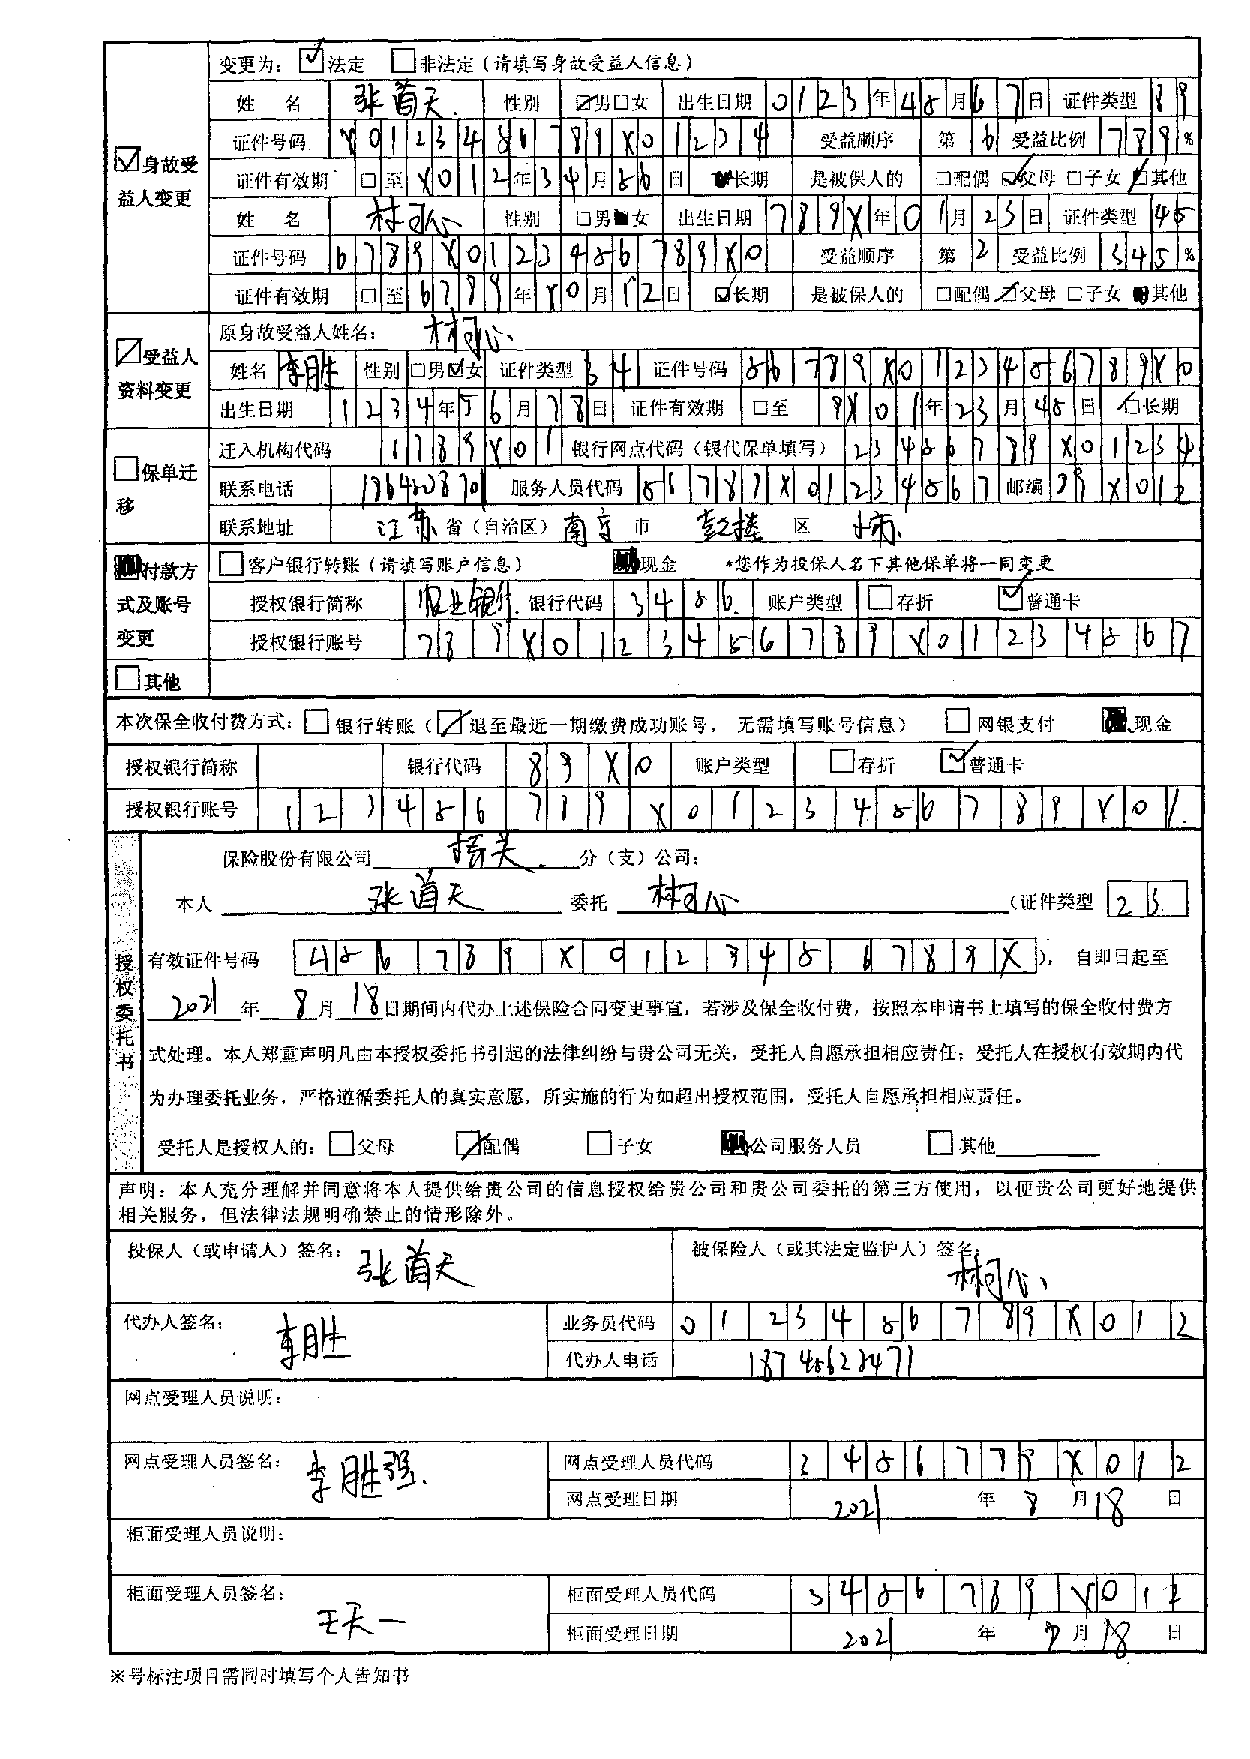 变更为： ☑法定 □非法定（请填写身故受益人信息）
姓 名 张首天 性别 ☑男□女 出生日期 0123年45月67日 证件类型 89
证件号码 X0123456789X01234 受益顺序 第 6 受益比例 789%
☑身故受益人变更
证件有效期 □至 X012年34月56日 ■长期 是被保人的 □配偶 ☑父母 □子女 ☑其他
姓 名 林可心 性别 □男■女 出生日期 789X年01月23日 证件类型 45
证件号码 6789X0123456789X0 受益顺序 第 2 受益比例 345%
证件有效期 □至 6789年X0月12日 ☑长期 是被保人的 □配偶 ☑父母 □子女 ■其他
☑受益人资料变更
原身故受益人姓名： 林可心
姓名 李胜 性别 □男☑女 证件类型 34 证件号码 56789X0123456789X0
出生日期 1234年56月78日 证件有效期 □至 9X01年23月45日 ☑长期
□保单迁移
迁入机构代码 1789X01 银行网点代码（银代保单填写） 23456789X01234
联系电话 服务人员代码 56789X01234567 邮编 89X012
联系地址 江苏 省（自治区） 南京 市 鼓楼 区
■付款方式及账号变更
□客户银行转账（请填写账户信息） ■现金 *您作为投保人名下其他保单将一同变更
授权银行简称 农业银行 银行代码 3456 账户类型 □存折 ☑普通卡
授权银行账号 789X0123456789X01234567
□其他
本次保全收付费方式： □银行转账（☑退至最近一期缴费成功账号，无需填写账号信息） □网银支付 ■现金
授权银行简称 银行代码 89X0 账户类型 □存折 ☑普通卡
授权银行账号 123456789X0123456789X01
授权委托书
保险股份有限公司 分（支）公司：
本人 张首天 委托 林可心 （证件类型 23
有效证件号码 456789X0123456789X ），自即日起至
2021 年 8 月 18 日期间内代办上述保险合同变更事宜，若涉及保全收付费，按照本申请书上填写的保全收付费方
式处理。本人郑重声明凡由本授权委托书引起的法律纠纷与贵公司无关，受托人自愿承担相应责任；受托人在授权有效期内代
为办理委托业务，严格遵循委托人的真实意愿，所实施的行为如超出授权范围，受托人自愿承担相应责任。
受托人是授权人的： □父母 ☑配偶 □子女 ■公司服务人员 □其他
声明：本人充分理解并同意将本人提供给贵公司的信息授权给贵公司和贵公司委托的第三方使用，以便贵公司更好地提供
相关服务，但法律法规明确禁止的情形除外。
投保人（或申请人）签名： 张首天 被保险人（或其法定监护人）签名： 林可心
代办人签名： 李胜 业务员代码 0123456789X012
代办人电话 18745623471
网点受理人员说明：
网点受理人员签名： 李胜强 网点受理人员代码 3456779X012
网点受理日期 2021 年 8 月 18 日
柜面受理人员说明：
柜面受理人员签名： 王天一 柜面受理人员代码 3456789X012
柜面受理日期 2021 年 7 月 18 日
※号标注项目需同时填写个人告知书